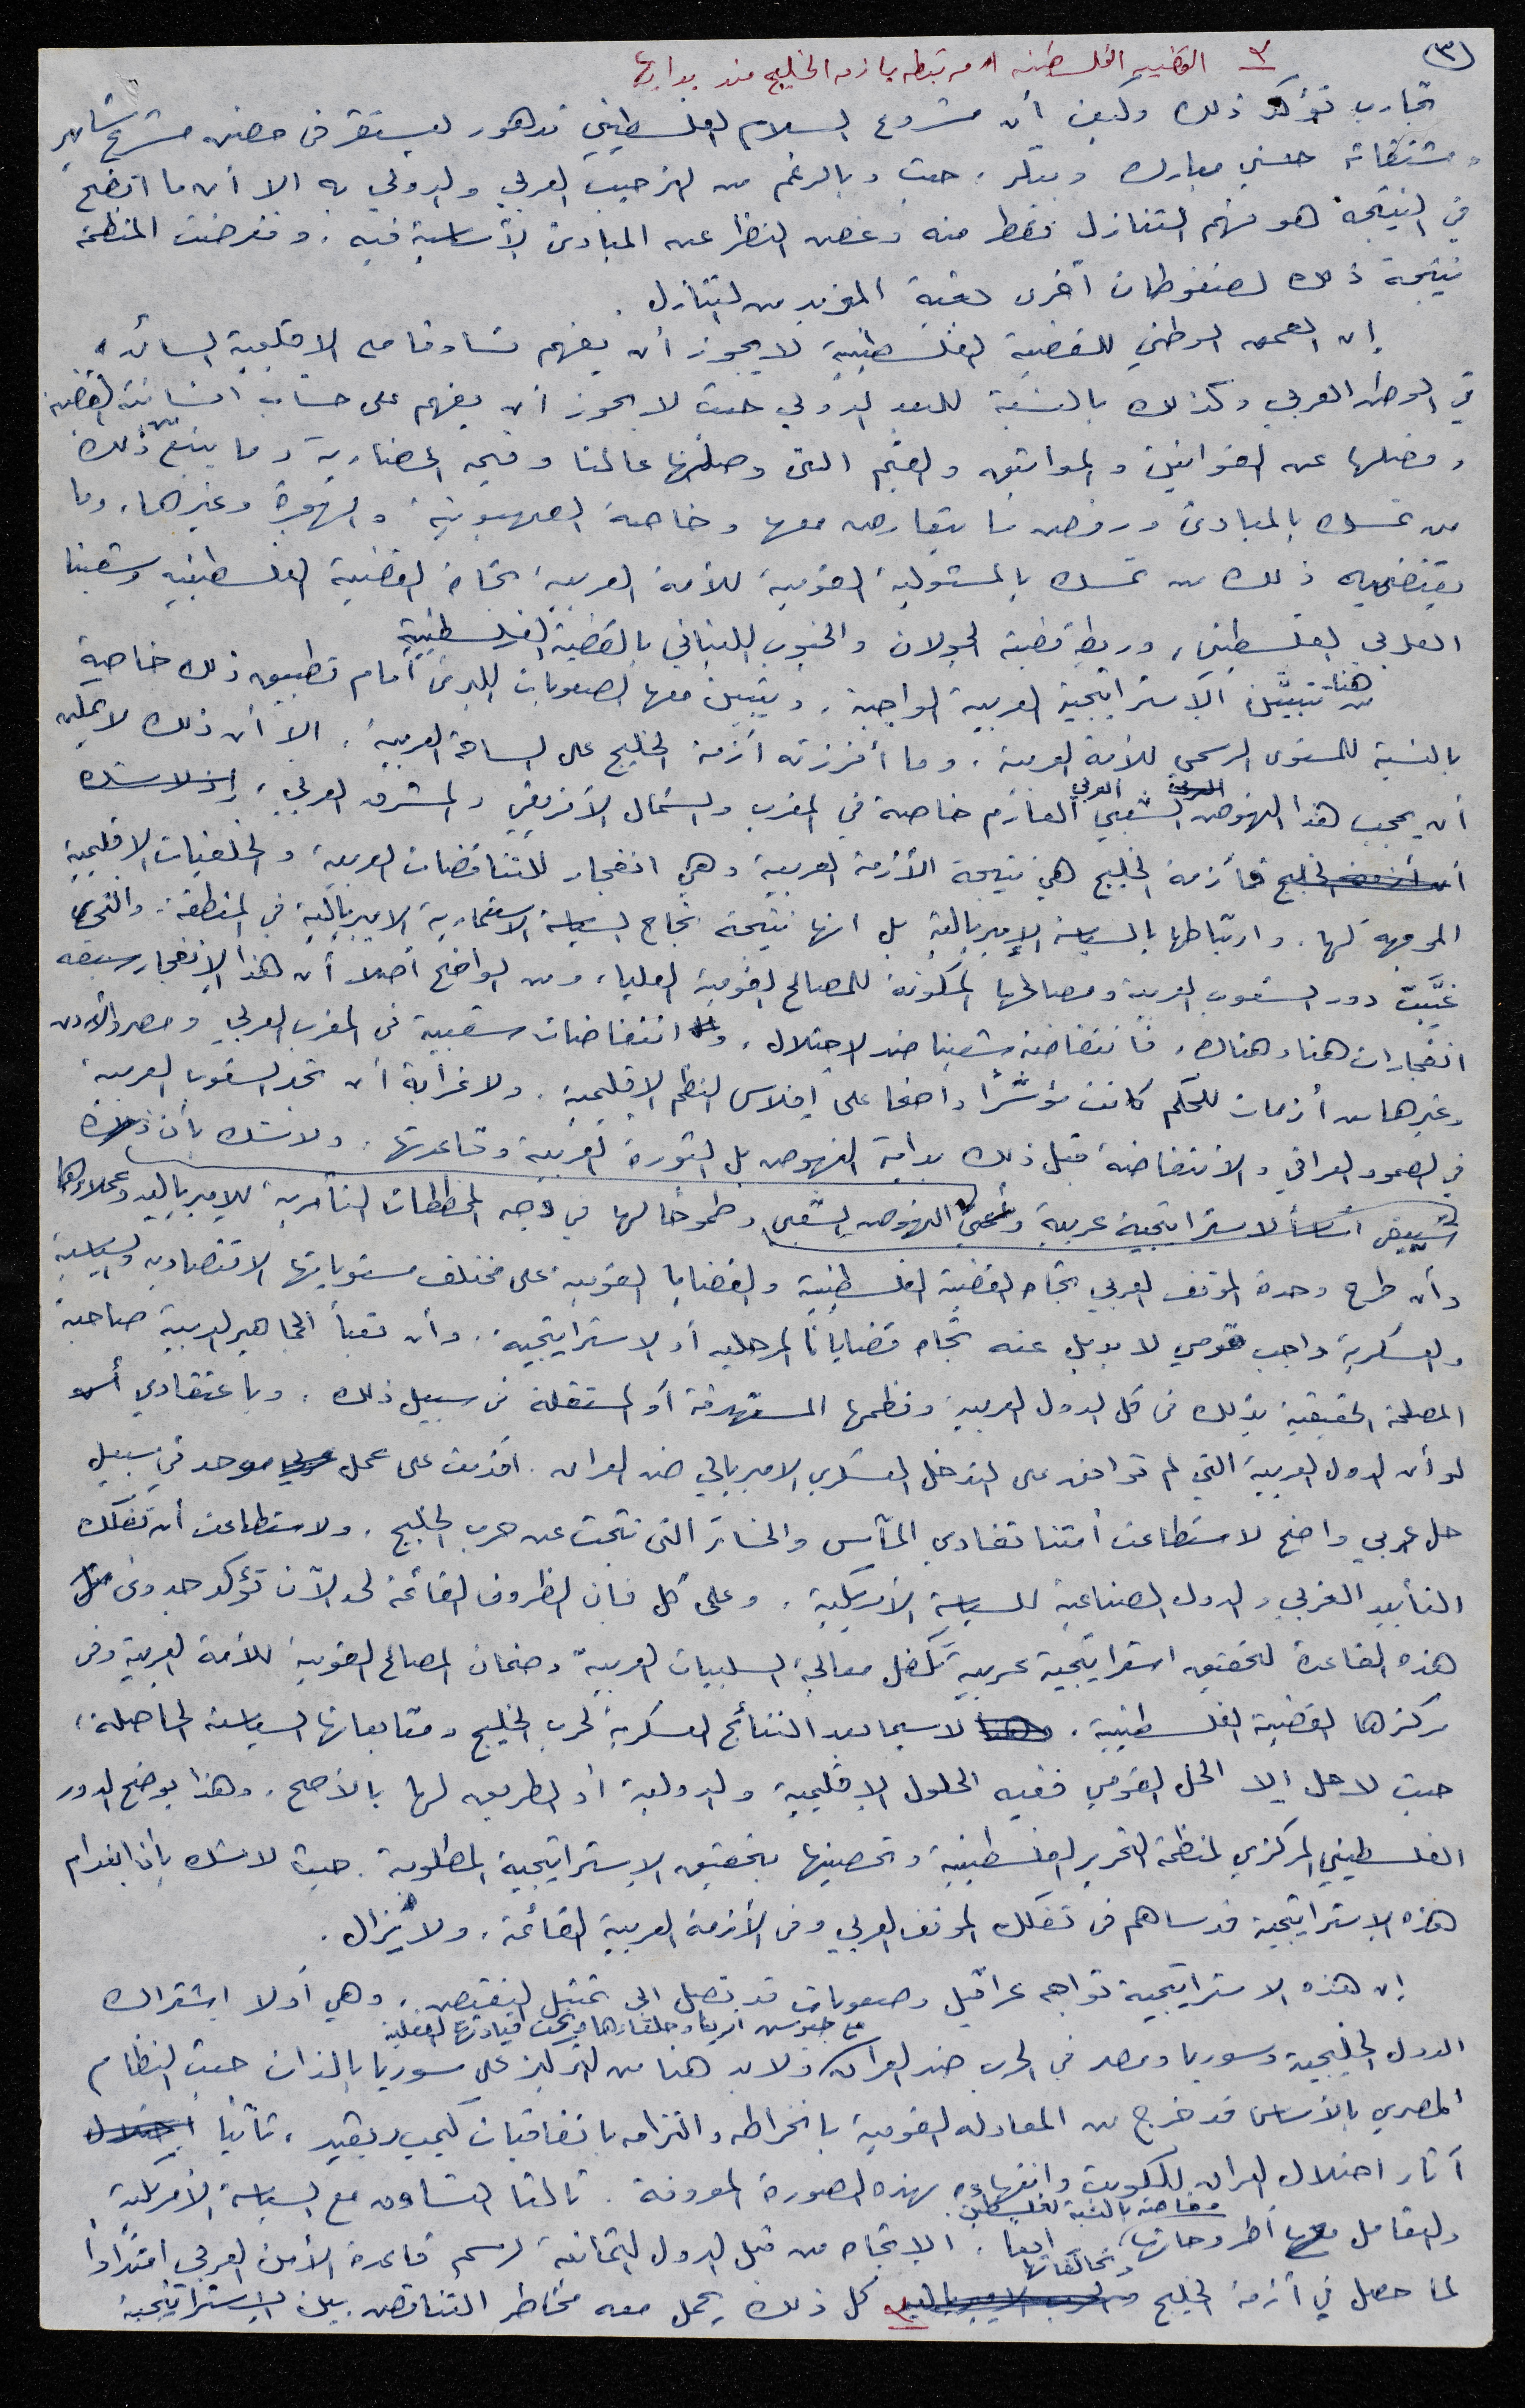 (٣)
٣ القضية الفلسطينه مرتبطه بازمه الخليج منذ بدايتها
تجارب تؤكد ذلك وكيف أن مشروع السلام الفلسطيني تدهور ليستقر في حضن مشروع شامير
ومشتقاته حسني مبارك وبيكر، حيث وبالرغم من الترحيب العربي والدولي به الا أن ما اتضح
في النتيجة هو فهم التنازل فقط منه وغض النظر عن المبادئ الأساسية فيه، وتعرضت المنظمة
نتيجة ذلك لضغوطات أخرى بغية المزيد من التنازل.
إن العمق الوطني للقضية الفلسطينية لا يجوز أن يفهم تساوقا مع الاقليمية السائدة
في الوطن العربي وكذلك بالنسبة للبعد الدولي حيث لا يجوز أن يفهم على حساب انسانية القضية
وفصلها عن القوانين والمواثيق والقيم التي وصلها عالمنا وقيمه الحضارية وما ينبع من ذلك
من تمسك بالمبادئ ورفض ما يتعارض معها وخاصة الصهيونية والهجرة وغيرها، وما
يقتضيه ذلك من تمسك بالمسئولية القومية للأمة العربية تجاه القضية الفلسطينيه وشعبنا
العربي الفلسطيني، وربط قضية الجولان والجنوب اللبناني بالقضية الفلسطينية
من هنا تتبيّن الاستراتيجية العربية الواجبة، ويتبين معها الصعوبات الكبرى أمام تطبيق ذلك خاصة
بالنسبة للمستوى الرسمي للأمة العربية، وما أفرزته أزمة الخليج على الساحة العربية، الا أن ذلك لا يمكن
أن يحجب هذا النهوض الشعبي العربي العارم خاصة في المغرب والشمال الأفريقي والمشرق العربي،
فأزمة الخليج هي نتيجة الأزمة العربية وهي انفجار للتناقضات العربية والخلفيات الاقليمية
الموجهة لها، وارتباطها بالسياسة الإمبريالية بل انها نتيجة نجاح السياسة الاستعمارية الامبريالية في المنطقة، والتي
غيّبت دور الشعوب العربية ومصالحها المكونة للمصالح القومية العليا، ومن الواضح أصلا أن هذا الانفجار سبقه
انفجارات هنا وهناك، فانتفاضة شعبنا ضد الاحتلال، وانتفاضات شعبية في المغرب العربي ومصر والأردن
وغيرها من أزمات للحكم كانت مؤشراً واضحا على إفلاس النظم الاقليمية، ولا غرابة أن تجد الشعوب العربية
في الصمود العراقي والانتفاضة قبل ذلك بداية النهوض بل الثورة العربية وقاعدتها، ولا شك بأن ذلك
أساسا لاستراتيجية عربية النهوض الشعبي وطموحا لها في وجه المخططات التآمرية للامبرياليه وعملاءها
وأن طرح وحدة الموقف العربي تجاه القضية الفلسطينية والقضايا القومية على مختلف مستوياتها الاقتصادية والسياسية
والعسكرية واجب قومي لا بديل عنه تجاه قضايانا المرحلية أو الاستراتيجية، وأن تعبأ الجماهير العربية صاحبة
المصلحة الحقيقية بذلك في كل الدول العربية ونظمها المستهدفة أو المستقلة في سبيل ذلك، وباعتقادي أنه
لو أن الدول العربية التي لم توافق على التدخل العسكري الامبريالي ضد العراق، أقدمت على عمل موحد في سبيل
حل عربي واضح لاستطاعت أمتنا تفادي المآسي والخسائر التي نتجت عن حرب الخليج، ولاستطاعت أن تفكك
التأييد الغربي والدول الصناعية للسياسة الأمريكية، وعلى كل فان الظروف القائمة لحد الآن تؤكد جدوى
هذه القاعدة لتحقيق استراتيجية عربية تكفل معالجة السلبيات العربية وضمان المصالح القومية للأمة العربية وفي
مركزها القضية الفلسطينية، لا سيما بعد النتائج العسكرية لحرب الخليج ومتابعاتها السياسية الحاصلة،
حيث لا حل إلا الحل القومي ففيه الحلول الإقليمية والدولية أو الطريق لها بالأصح، وهذا يوضح الدور
الفلسطيني المركزي لمنظمة التحرير الفلسطينية وتحصينها بتحقيق الاستراتيجية المطلوبة، حيث لا شك بأن انعدام
هذه الاستراتيجية قد ساهم في تفكك الموقف العربي وفي الأزمة العربية القائمة، ولا يزال.
إن هذه الاستراتيجية تواجه عراقيل وصعوبات قد تصل الى تمثيل النقيض، وهي أولا اشتراك
مع جيوش أمريكا وحلفاءها وتحت قيادتها الفعلية
الدول الخليجية وسوريا ومصر في الحرب ضد العراق ولا بد هنا من التركيز على سوريا بالذات حيث النظام
المصري بالأساس قد خرج من المعادله القومية بانخراطه والتزامه باتفاقيات كامب ديفيد، ثانيا احتلال
آثار احتلال العراق للكويت وانتهاءه بهذه الصورة المعروفة، ثالثا التساوق مع السياسة الأمريكية
وخاصة بالنسبة لفلسطين
والتعامل مع أطروحاتها وتحالفاتها أيضا، الاتجاه من قبل الدول الثمانية لرسم قاعدة الأمن العربي امتدادا
لما حصل في أزمة الخليج كل ذلك يحمل معه مخاطر التناقض بين الاستراتيجية